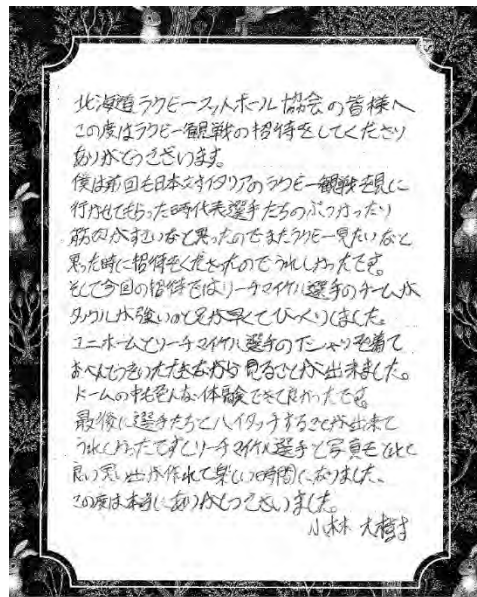 北海道ラグビーフットボール協会の皆様へ
この度はラグビー観戦の招待をしてくださり
ありがとうございます。
僕は前回も日本対イタリアのラグビー観戦を見に
行かせてもらった時代表選手たちのぶつかったり
筋肉がすごいなと思ったのでまたラグビー見たいなと
思った時に招待をくださったのでうれしかったです。
そして今回の招待ではリーチマイケル選手のチームが
タックルが強いのと足が早くてびっくりしました。
ユニホームとリーチマイケル選手のTシャツを着て
おべんとうをいただきながら見ることが出来ました。
ドームの中も色んな体験できて良かったです。
最後に選手たちとハイタッチすることが出来て
うれしかったですしリーチマイケル選手と写真もとれて
良い思い出が作れて楽しい時間になりました。
この度は本当にありがとうございました。
小林 大樹